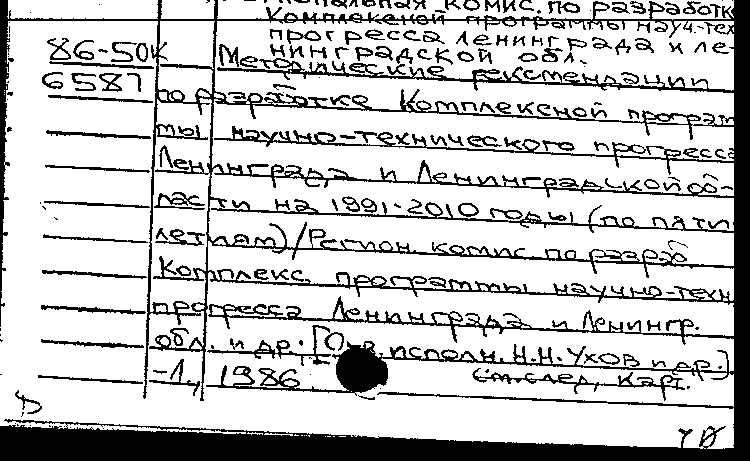 комис. по разработк
Комплексной программы науч.-тех
прогресса Ленинграда и ле-
нинградской обл.
86-50к Методические рекомендации
6587 по разработке Комплексной програм
мы научно-технического прогресса
Ленинграда и Ленинградской об-
ласти на 1991-2010 годы (по пяти
летиям)/Регион. комис. по разраб.
Комплекс. программы научно-техн
прогресса Ленинграда и Ленингр.
обл. и др.; исполн. Н.Н. Ухов и др.].
-1., 1986. См. след. карт.